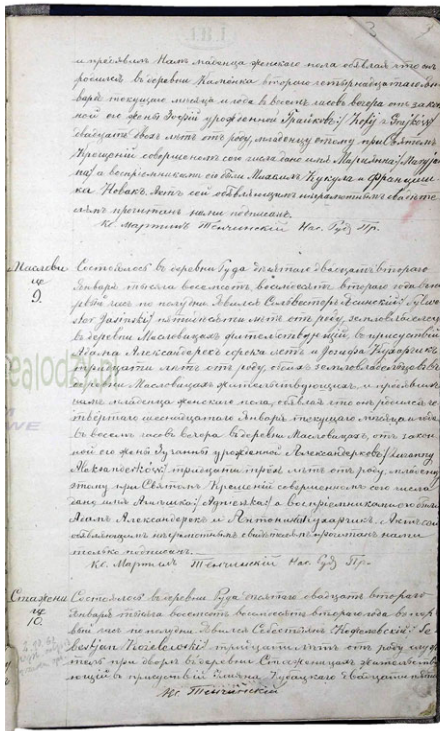 3
и предъявил Намъ младенца женскаго пола объявляя что онъ
родился въ деревни Камонка втораго четырнадцатаго Ян
варя текущаго мѣсяца и года въ восемь часовъ вечера отъ закон
ной его жены Зофіи урожденной Грайковъ /: Zofij z Grajków:/
двадцать двохъ лѣтъ отъ роду, младенцу этому при Святомъ
Крещеніи совершенномъ сего числа дано имя Маріянна /: Maryjan
na:/ а воспріемниками его были Михалъ Кукула и Францишка
ка Новакъ. Актъ сей объявляющимъ неграмотнымъ свидѣте
лямъ прочитанъ нами подписанъ.
Кс. Мартинъ Тенчинскій Нас. Руд. Пр.
Маслови
це
9.
Состоялось въ деревни Руда десятаго двадцать втораго
Января тысяча восемсотъ восемьдесятъ втораго года въ
часъ по полудни. Явился Сильвестеръ Ясинскій /: Sylwe
ster Jasinski:/ лѣтъ отъ роду, землевладѣлецъ
въ деревни Масловицахъ жительствующій, въ присутствіи
Адама Александерекъ сорока лѣтъ и Іозефа Кухарчикъ
тридцати лѣтъ отъ роду, обоихъ землевладѣльцевъ въ
деревни Масловицахъ жительствующихъ и предъявилъ
намъ младенца женскаго пола, объявляя что онъ родился че
твертаго шестнадцатаго Января текущаго мѣсяца и года
въ восемь часовъ вечера въ деревни Масловицахъ, отъ закон
ной его жены Зузанны урожденной Александерковъ /: Zuzanny
Aleksanderków:/ тридцати трохъ лѣтъ отъ роду, младенцу
этому при Святомъ Крещеніи совершенномъ сего числа
дано имя Агнешка /: Agnieszka:/ а воспріемниками его были
Адамъ Александерекъ и Антонина Кухарчикъ. Актъ сей
объявляющимъ неграмотнымъ свидѣтелямъ прочитанъ нами
только подписанъ.
Кс. Мартинъ Тенчинскій Нас. Руд. Пр.
Стажени
це
10.
Состоялось въ деревни Руда десятаго двадцать втораго
Января тысяча восемсотъ восемьдесятъ втораго года въ пер
вый часъ по полудни. Явился Себестіянъ Козеловскій /: Se
bestyan Kozelowski:/ тридцати лѣтъ отъ роду слу
при дворѣ въ деревни Стаженицахъ жительству
ющій въ присутствіи двадцати
Кс. Тенчинскій